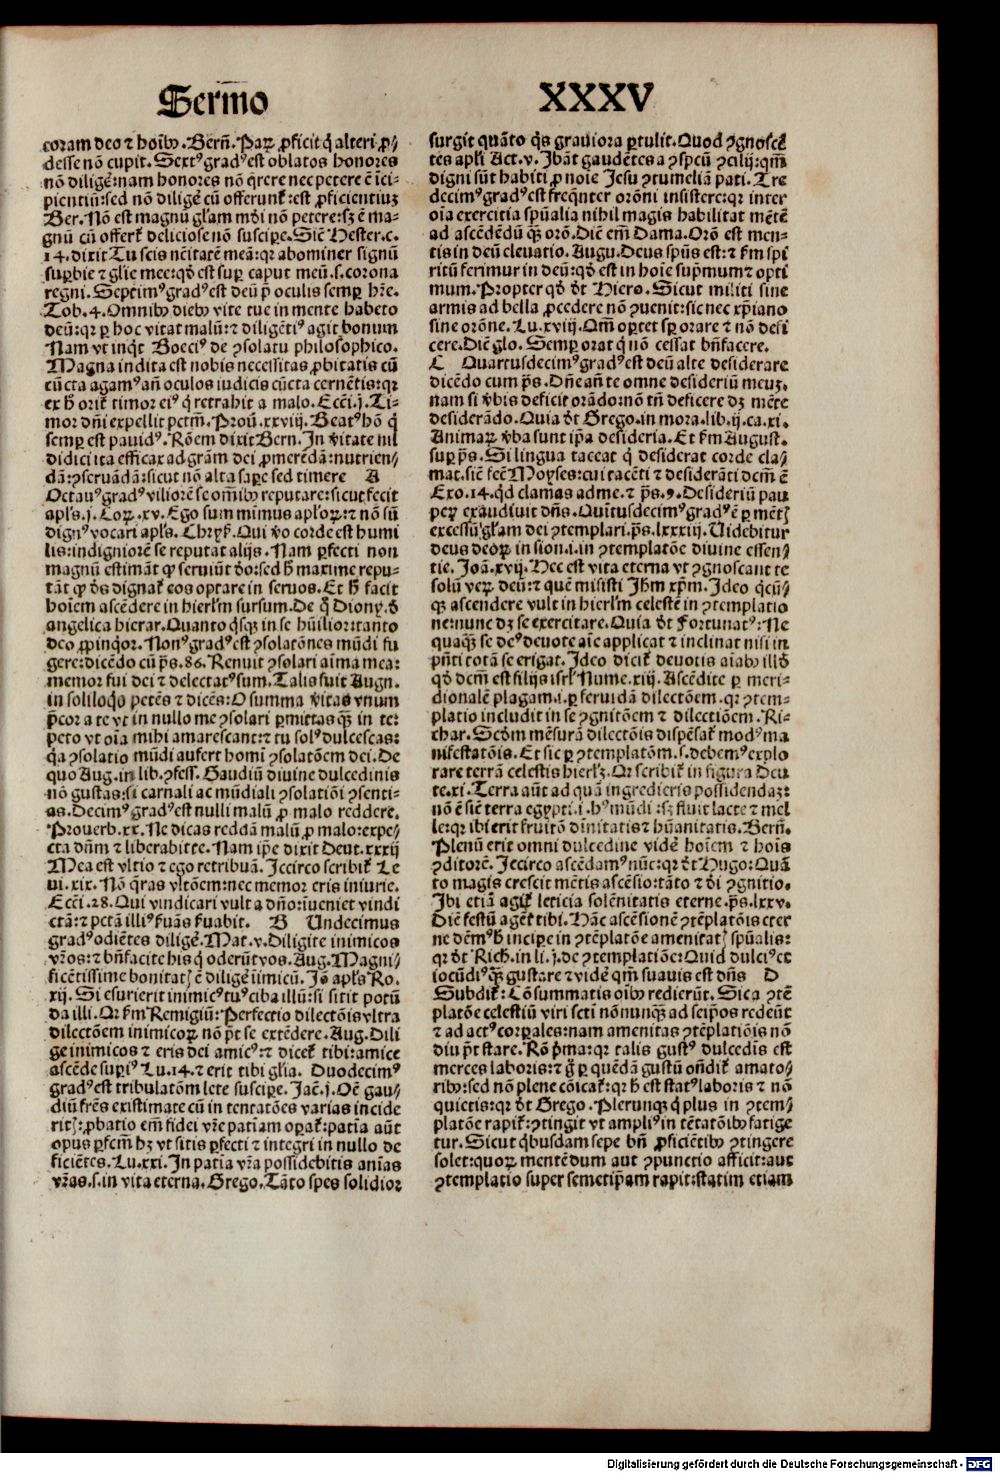 Sermo XXXV
coram deo ⁊ hoībꝰ. Bern̄. Paꝝ ꝓficit q̇ alteri ꝓ⸗
desse nō cupit. Sextꝰ gradꝰ est oblatos honores
nō diligē: nam honores nō q̄rere nec petere ē ici⸗
pientiū: sed nō diligē cū offerunt᷑: est ꝓficientiuꝫ
Ber. Nō est magnū gl̄am mūdi nō petere: sꝫ ē ma⸗
gnū cū offert᷑ deliciose nō suscipe. Sic̄ Hester. c.
14. dixit Tu scis n̄c̄itatē meā: qꝛ abominer signū
suꝑbie ⁊ glīe mee: qd̄ est suꝑ caput meū. s. corona
regni. Septimꝰ gradꝰ est deū p̄ oculis semꝑ hr̄e.
Tob. 4. Omnibꝰ diebꝰ vite tue in mente habeto
deū: qꝛ ꝑ hoc vitat malū: ⁊ diligētiꝰ agit bonum
Nam vt inqͥt Boeciꝰ de ꝯsolatu philosophico.
Magna indita est nobis necessitas ꝓbitatis cū
cūcta agamꝰ an̄ oculos iudicis cūcta cernētis: qꝛ
ex h̄ orit᷑ timor eiꝰ q̇ retrahit a malo. Ecc̄i. j. Ti⸗
mor dn̄i expellit pctm̄. Prou. xxviij. Beatꝰ hō q̇
semꝑ est pauidꝰ. Rōem dixit Bern. In v̄itate nil
didici ita efficax ad gr̄am dei ꝓmerēdā: nutrien⸗
dā: ꝯseruādā: sicut nō alta sape sed timere A
Octauꝰ gradꝰ viliorē se om̄ibꝰ reputare: sicut fecit
apl̄s. j. Coꝝ. xv. Ego sum minimus apl̄oꝝ: ⁊ nō sū
dignꝰ vocari apl̄s. Chryẜ. Qui v̄o corde est humi
lis: indigniorē se reputat alijs. Nam ꝑfecti non
magnū estimāt ꝙ seruiūt deo: sed h̄ maxime repu⸗
tāt ꝙ dꝰs dignat᷑ eos optare in seruos. Et h̄ facit
hoīem ascēdere in hierl̄m sursum. De q̄ Diony. d̄
angelica hierar. Quanto qͥsqꝫ in se hūilior: tanto
deo ꝓpinqͥor. Nonꝰ gradꝰ est ꝯsolatōnes mūdi fu
gere: dicēdo cū ps̄. 86. Renuit ꝯsolari aīma mea:
memor fui dei ⁊ delectatꝰ sum. Talis fuit Augꝰ.
in soliloqͥo petēs ⁊ dicēs: O summa v̄itas vnum
p̄cor a te vt in nullo me ꝯsolari ꝑmittas qꝫ in te:
peto vt oīa mihi amarescant: ⁊ tu solꝰ dulcescas:
qͥa ꝯsolatio mūdi aufert homī ꝯsolatōem dei. De
quo Aug. in lib. ꝯfess. Gaudiū diuine dulcedinis
nō gustas: si carnali ac mūdiali ꝯsolatiōi ꝯsenti⸗
as. Decimꝰ gradꝰ est nulli malū ꝓ malo reddere.
Prouerb. xx. Ne dicas reddā malū ꝓ malo: expe⸗
cta dn̄m ⁊ liberabit te. Nam ip̄e dixit Deut. xxxij
Mea est vltio ⁊ ego retribuā. Iccirco scribit᷑ Le
ui. xix. Nō q̄ras vltōem: nec memor eris iniurie.
Ecc̄i. 28. Qui vindicari vult a dn̄o: īueniet vindi
ctā: ⁊ pctā illiꝰ ẜuās ẜuabit. B Undecimus
gradꝰ odiētes diligē. Mat. v. Diligite inimicos
vr̄os: ⁊ bn̄facite his q̇ oderūt vos. Aug. Magni⸗
ficētissime bonitatꝭ ē diligē īimicū. Jō apl̄s Ro.
xij. Si esurierit inimicꝰ tuꝰ ciba illū: si sitit potū
da illi. Qꝛ ẜm Remigiū: Perfectio dilectōis vltra
dilectōem inimicoꝝ nō pōt se extēdere. Aug. Dili
ge inimicos ⁊ eris dei amicꝰ: ⁊ dicet᷑ tibi: amice
ascēde supiꝰ Lu. 14. ⁊ erit tibi gl̄ia. Duodecimꝰ
gradꝰ est tribulatōm lete suscipe. Jac̄. j. Oē gau⸗
diū frēs existimate cū in tentatōes varias incide
ritꝭ: ꝓbatio em̄ fidei vr̄e patiam oꝑat᷑: patia aūt
opus ꝑfcm̄ hꝫ vt sitis ꝑfecti ⁊ integri in nullo de
ficiētes. Lu. xxi. In patia vr̄a possidebitis anīas
vr̄as. s. in vita eterna. Grego. Tāto spes solidior
surgit quāto qͥs grauiora ꝑtulit. Quod ꝯgnoscē
tes apl̄i Act. v. Ibāt gaudētes a ꝯspcū ꝯcilij: qm̄
digni sūt habiti ꝓ noīe Jesu ꝯtumeliā pati. Tre
decimꝰ gradꝰ est freq̄nter orōni insistere: qꝛ inter
oīa exercitia spūalia nihil magis habilitat mētē
ad ascēdēdū qꝫ orō. Diē em̄ Dama. Orō est men⸗
tis in deū eleuatio. Augu. Deus spūs est: ⁊ ẜm spi
ritū ferimur in deū: qd̄ est in hoīe sup̄mum ⁊ opti
mum. Propter qd̄ d̄t Hiero. Sicut militi sine
armis ad bella ꝓcedere nō ꝯuenit: sic nec xp̄iano
sine orōne. Lu. xviij. Qm̄ oꝑtet sp̄ orare ⁊ nō defi
cere. Diē glo. Semꝑ orat q̇ nō cessat bn̄facere.
C Quartusdecimꝰ gradꝰ est deū alte desiderare
dicēdo cum ps̄. Dn̄e an̄ te omne desideriū meuꝫ.
nam si v̄bis deficit orādo: nō tn̄ deficere dꝫ mēte
desiderādo. Quia d̄t Grego. in mora. lib. ij. ca. xi.
Animaꝝ v̄ba sunt ip̄a desideria. Et ẜm August.
suꝑ ps̄. Si lingua taceat q̇ desiderat corde cla⸗
mat. sic̄ fec̄ Moyses: cui tacēti ⁊ desiderāti dcm̄ ē
Exo. 14. qͥd clamas ad me. ⁊ ps̄. 9. Desideriū pau
peꝝ exaudiuit dn̄s. Quītusdecimꝰ gradꝰ ē ꝑ mētꝭ
excessū gl̄am dei ꝯtemplari. ps̄. lxxxiij. Uidebitur
deus deoꝝ in sion. i. in ꝯtemplatōe diuine essen⸗
tie. Joā. xvij. Hec est vita eterna vt ꝯgnoscant te
solū veꝝ deū: ⁊ quē misisti Jhm̄ xp̄m. Ideo qͥcū⸗
qꝫ ascendere vult in hierl̄m celestē in ꝯtemplatio
ne nunc dꝫ se exercitare. Quia d̄t Fortunatꝰ: Ne
quaqꝫ se deꝰ deuote aīe applicat ⁊ inclinat nisi in
pn̄ti totā se erigat. Ideo dicit᷑ deuotis aīabꝰ illd̄
qd̄ dcm̄ est filijs isrl̄ Nume. xiij. Ascēdite ꝑ meri⸗
dionalē plagam. i. ꝑ feruidā dilectōem. qꝛ ꝯtem⸗
platio includit in se ꝯgnitōem ⁊ dilectiōem. Ri⸗
char. Scd̄m mēsurā dilectōis dispēsat᷑ modꝰ ma
nifestatōis. Et sic ꝑ ꝯtemplatōm. s. debemꝰ explo
rare terrā celestis hierlꝫ. Qꝛ scribit᷑ in figura Deu
te. xi. Terra aūt ad quā ingredieris possidendaꝫ:
nō ē sic̄ terra egypti. i. hꝰ mūdi: sꝫ fluit lacte ⁊ mel
le: qꝛ ibi erit fruitō diuītatis ⁊ hūanitatis. Bern̄.
Plenū erit omni dulcedine vidē hoīem ⁊ hoīs
ꝯditorē. Iccirco ascēdamꝰ nūc: qꝛ d̄t Hugo: Quā
to magis crescit mētis ascēsio: tāto ⁊ dī ꝯgnitio.
Ibi etiā agit᷑ leticia solēnitatis eterne. ps̄. lxxv.
Diē festū agēt tibi. Hāc ascēsionē ꝯtēplatōis eter
ne dēmꝰ h̄ incipe in ꝯtēplatōe amenitatꝭ spūalis:
qꝛ d̄t Rich. in li. j. de ꝯtemplatiōe: Quid dulciꝰ et
iocūdiꝰ qꝫ gustare ⁊ vidē qm̄ suauis est dn̄s D
Subdit᷑: Cōsummatis oībꝰ redierūt. Sic a ꝯtē
platōe celestiū viri scti nōnunqꝫ ad seip̄os redeūt
⁊ ad actꝰ corꝑales: nam amenitas ꝯtēplatiōis nō
diu pōt stare. Rō pͥma: qꝛ talis gustꝰ dulcedīs est
merces laboris: ⁊ g̊ ꝑ quēdā gustū on̄dit᷑ amato⸗
ribꝰ: sed nō plene cōicat᷑: qꝛ h̄ est statꝰ laboris ⁊ nō
quietis: qꝛ d̄t Grego. Plerunqꝫ q̇ plus in ꝯtem⸗
platōe rapit᷑: ꝯtingit vt ampliꝰ in tētatōibꝰ fatige
tur. Sicut qͥbusdam sepe bn̄ ꝓficiētibꝰ ꝯtingere
solet: quoꝝ mentē dum aut ꝯpunctio afficit: aut
ꝯtemplatio super semetip̄am rapit: statim etiam
Digitalisierung gefördert durch die Deutsche Forschungsgemeinschaft - DFG